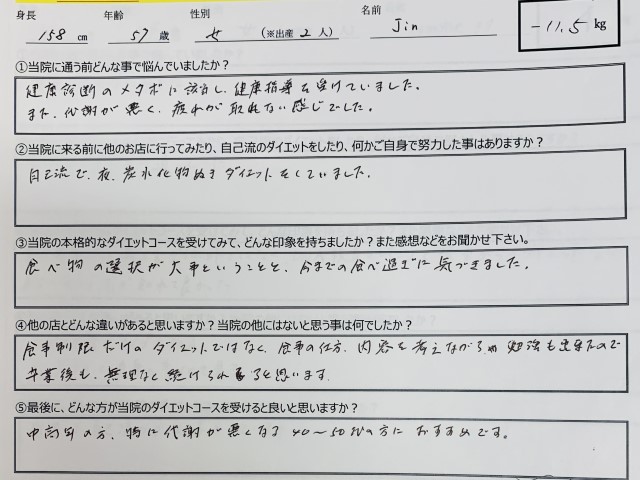 身長 年齢 性別 名前
158 cm 57 歳 女 (※出産 2 人) Jin -11.5 kg
①当院に通う前どんな事で悩んでいましたか？
健康診断のメタボに該当し、健康指導を受けていました。
また、代謝が悪く、疲れが取れない感じでした。
②当院に来る前に他のお店に行ってみたり、自己流のダイエットをしたり、何かご自身で努力した事はありますか？
自己流で、夜、炭水化物ぬきダイエットをしていました。
③当院の本格的なダイエットコースを受けてみて、どんな印象を持ちましたか？また感想などをお聞かせ下さい。
食べ物の選択が大事ということと、今までの食べ過ぎに気づきました。
④他の店とどんな違いがあると思いますか？当院の他にはないと思う事は何でしたか？
食事制限だけのダイエットではなく、食事の仕方、内容を考えながら 勉強も出来たので
卒業後も、無理なく続けられると思います
⑤最後に、どんな方が当院のダイエットコースを受けると良いと思いますか？
中高年の方、特に代謝が悪くなる40～50代の方におすすめです。